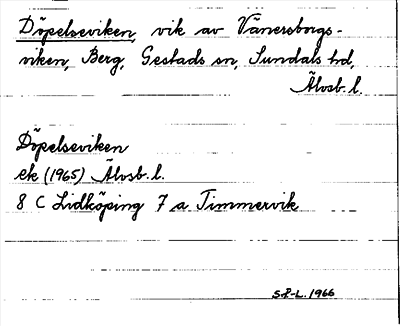 Döpelseviken, vik av Vänersborgs-
viken, Berg, Gestads sn, Sundals hd,
Älvsb. l.
Döpelseviken
ek (1965) Älvsb. l.
8 C Lidköping 7 a Timmervik
S.P-L. 1966